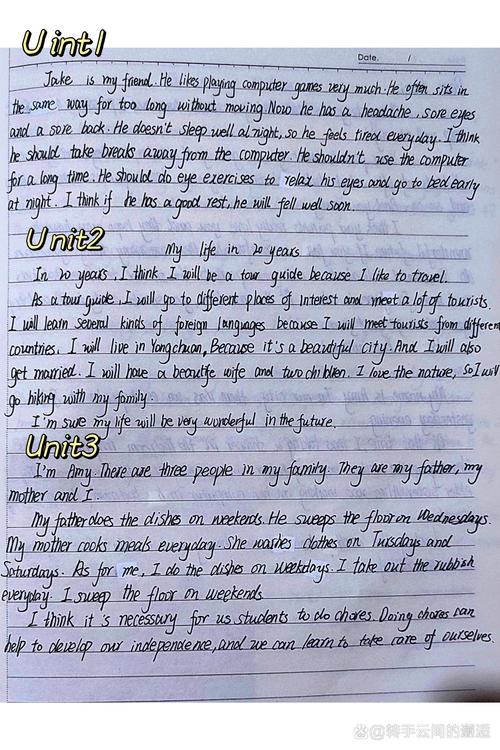 U int1
Date. /
Jake is my friend. He likes playing computer games very much. He often sits in
the same way for too long without moving Now he has a headache, sore eyes
and a sore back. He doesn't sleep well at night, so he feels tired everyday. I think
he should take breaks away from the computer. He shouldn't use the computer
for a long time. He should do eye exercises to relax his eyes and go to bed early
at night. I think if he has a good rest, he will fell well soon.
Unit2
My life in 20 years
In 20 years, I think I will be a tour guide because I like to travel.
As a tour guide, I will go to different places of interest and meet a lot of tourists.
I will learn several kinds of foreign languages because I will meet tourists from different
countries. I will live in Yongchuan, Because it's a beautiful city. And I will also
get married. I will have a beautife wife and two children. I love the nature, so I will
go hiking with my family.
I'm sure my life will be very wonderful in the future.
Unit3
I'm Amy. There are three people in my family. They are my father, my
mother and I.
My father does the dishes on weekends. He sweeps the floor on Wednesdays.
My mother cooks meals everyday. She washes clothes on Tuesdays and
Saturdays. As for me, I do the dishes on weekdays. I take out the rubbish
everyday. I sweep the floor on weekends
I think it is necessary for us students to do chores. Doing chores can
help to develop our independence, and we can learn to take care of ourselves.
@转手云间的邂逅